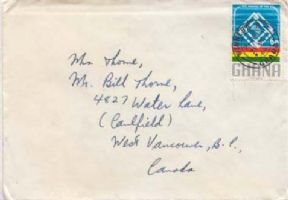 GHANA
Mrs Thorne,
Mr. Bill Thorne,
4827 Water Lane,
(Caulfield)
West Vancouver, B.C.,
Canada